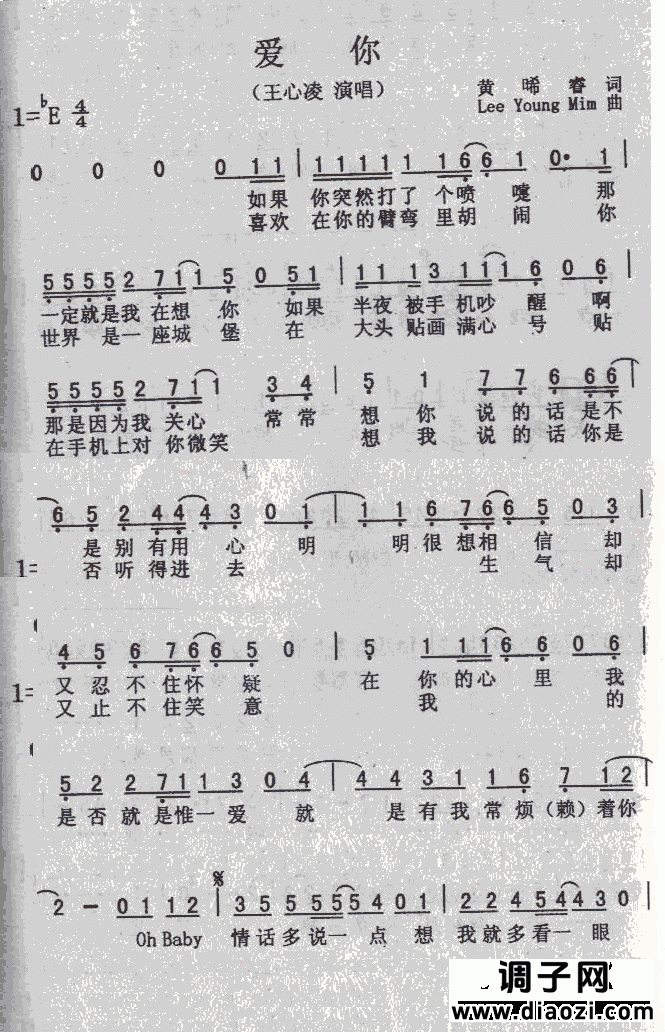 爱 你
（王心凌 演唱）
黄 晞 睿 词
Lee Young Mim 曲
1=♭E 4/4
0 0 0 0 1 1 | 1 1 1 1 1 1 6 6 1 0· 1 |
如果 你突然打了 个喷 嚏 那
喜欢 在你的臂弯 里胡 闹 你
5 5 5 5 2 7 1 1 5 0 5 1 | 1 1 1 3 1 1 1 6 0 6 |
一定就是我 在想 你 如果 半夜 被手 机吵 醒 啊
世界 是一 座城 堡 在 大头 贴画 满心 号 贴
5 5 5 5 2 7 1 1 3 4 | 5 1 7 7 6 6 6
那是因为我 关心 常 常 想 你 说 的 话 是不
在手机上对 你微笑 想 我 说 的 话 你是
6 5 2 4 4 4 3 0 1 | 1 1 6 7 6 6 5 0 3 |
是 别 有用 心 明 明 很 想相 信 却
否 听 得进 去 生 气 却
1=
4 5 6 7 6 6 5 0 | 5 1 1 1 6 6 0 6 |
又 忍 不 住怀 疑 在 你 的心 里 我
又 止 不 住笑 意 我 的
1=
5 2 2 2 7 1 1 3 0 4 | 4 4 3 1 1 6 7 1 2
是 否 就 是惟一 爱 就 是 有 我 常 烦（赖）着你
2 － 0 1 1 2 | 3 5 5 5 5 5 5 4 0 1 | 2 2 4 5 4 4 3 0 |
Oh Baby 情 话 多 说 一 点 想 我 就 多 看 一 眼
调子网
www.diaozi.com